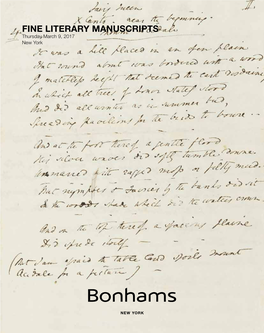 Fairy Queen II.
X Canto - near the beginning
FINE LITERARY MANUSCRIPTS
Thursday March 9, 2017
New York
It was a hill placed in an open plain
That round about was bordered with a wood
Of matchless height that seemed the earth disdaine
In which all trees of honor stately stood
And did all winter as in summer bud,
Spreading pavilions for the birds to bowre
And at the foot thereof a gentle flood
His silver waves did softly tumble downe
Unmarred with ragged moss or filthy mud.
nymphes & faeries by the banks did sit
In the woods shade which did the waters crown.
And on the top thereof a spacious plaine
Did sprede itself
(But I am afraid the table land spoils mount
Acidale for a picture)
Bonhams
NEW YORK